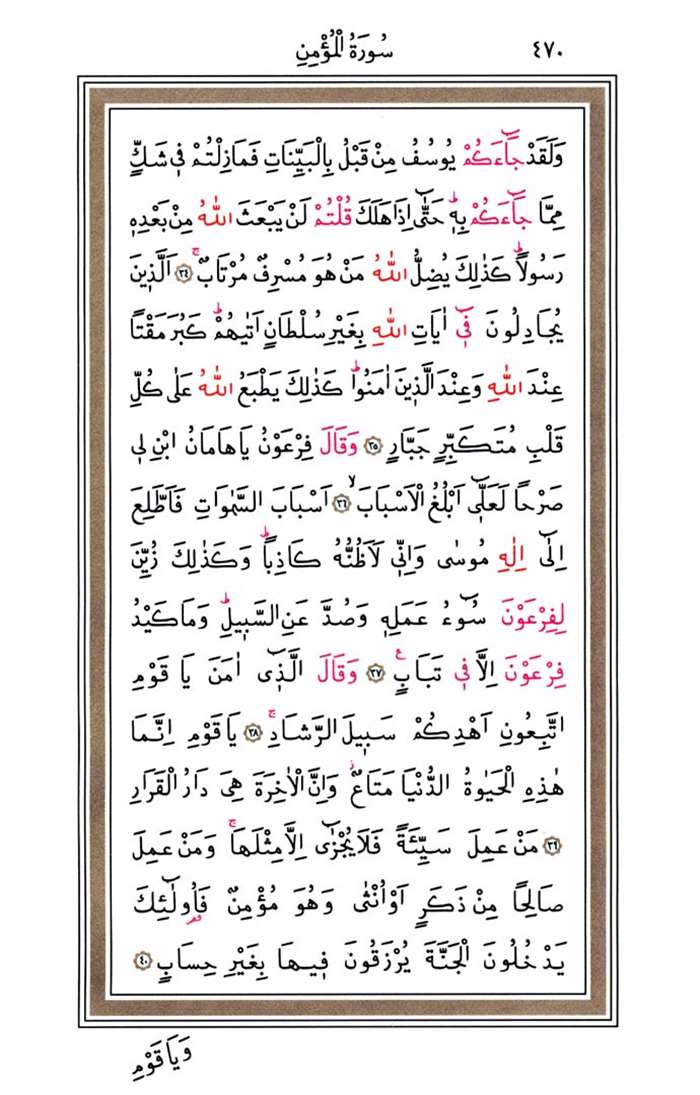 ٤٧٠ سُورَةُ الْمُؤْمِنِ
وَلَقَدْ جَٓاءَكُمْ يُوسُفُ مِنْ قَبْلُ بِالْبَيِّنَاتِ فَمَازِلْتُمْ ف۪ي شَكٍّ
مِمَّا جَٓاءَكُمْ بِه۪ۜ حَتّٰٓى اِذَا هَلَكَ قُلْتُمْ لَنْ يَبْعَثَ اللّٰهُ مِنْ بَعْدِه۪
رَسُولًاۜ كَذٰلِكَ يُضِلُّ اللّٰهُ مَنْ هُوَ مُسْرِفٌ مُرْتَابٌۚ ﴿٣٤﴾ اَلَّذ۪ينَ
يُجَادِلُونَ ف۪ٓي اٰيَاتِ اللّٰهِ بِغَيْرِ سُلْطَانٍ اَتٰيهُمْۜ كَبُرَ مَقْتًا
عِنْدَ اللّٰهِ وَعِنْدَ الَّذ۪ينَ اٰمَنُواۜ كَذٰلِكَ يَطْبَعُ اللّٰهُ عَلٰى كُلِّ
قَلْبِ مُتَكَبِّرٍ جَبَّارٍ ﴿٣٥﴾ وَقَالَ فِرْعَوْنُ يَا هَامَانُ ابْنِ ل۪ي
صَرْحًا لَعَلّ۪ٓي اَبْلُغُ الْاَسْبَابَۙ ﴿٣٦﴾ اَسْبَابَ السَّمٰوَاتِ فَاَطَّلِعَ
اِلٰٓى اِلٰهِ مُوسٰى وَاِنّ۪ي لَاَظُنُّهُ كَاذِبًاۜ وَكَذٰلِكَ زُيِّنَ
لِفِرْعَوْنَ سُٓوءُ عَمَلِه۪ وَصُدَّ عَنِ السَّب۪يلِۜ وَمَا كَيْدُ
فِرْعَوْنَ اِلَّا ف۪ي تَبَابٍ۟ ﴿٣٧﴾ وَقَالَ الَّذ۪ٓي اٰمَنَ يَا قَوْمِ
اتَّبِعُونِ اَهْدِكُمْ سَب۪يلَ الرَّشَادِۚ ﴿٣٨﴾ يَا قَوْمِ اِنَّمَا
هٰذِهِ الْحَيٰوةُ الدُّنْيَا مَتَاعٌۘ وَاِنَّ الْاٰخِرَةَ هِيَ دَارُ الْقَرَارِ
﴿٣٩﴾ مَنْ عَمِلَ سَيِّئَةً فَلَا يُجْزٰٓى اِلَّا مِثْلَهَاۚ وَمَنْ عَمِلَ
صَالِحًا مِنْ ذَكَرٍ اَوْ اُنْثٰى وَهُوَ مُؤْمِنٌ فَاُو۬لٰٓئِكَ
يَدْخُلُونَ الْجَنَّةَ يُرْزَقُونَ ف۪يهَا بِغَيْرِ حِسَابٍ ﴿٤٠﴾
وَيَا قَوْمِ